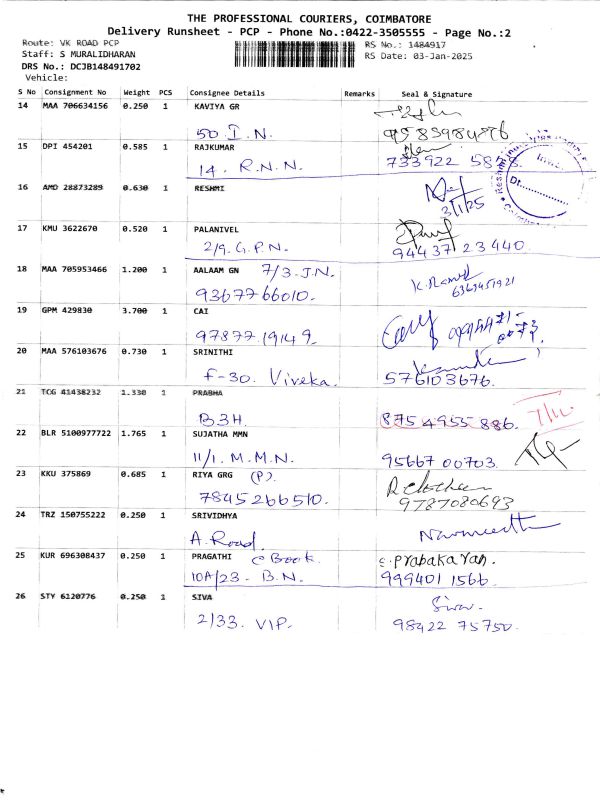 THE PROFESSIONAL COURIERS, COIMBATORE
Delivery Runsheet - PCP - Phone No.:0422-3505555 - Page No.:2
Route: VK ROAD PCP
RS No.: 1484917
Staff: S MURALIDHARAN
RS Date: 03-Jan-2025
DRS No.: DCJB148491702
Vehicle:
S No Consignment No Weight PCS Consignee Details Remarks Seal & Signature
14 MAA 706634156 0.250 1 KAVIYA GR
50. I. N.
15 DPI 454201 0.585 1 RAJKUMAR
14. R.N.N. 733922 5878
16 AMD 28873289 0.630 1 RESHMI
3/1/25
17 KMU 3622670 0.520 1 PALANIVEL
2/9. G.P.N. 94437 23 440.
18 MAA 705953466 1.200 1 AALAAM GN 7/3. J.N.
93677 66010. 6363451921
19 GPM 429830 3.700 1 CAI
97877 19149.
20 MAA 576103676 0.730 1 SRINITHI
F-30. Viveka. 576103676.
21 TCG 41438232 1.330 1 PRABHA
B3H. 875 4955 886.
22 BLR 5100977722 1.765 1 SUJATHA MMN
11/1. M.M.N. 95667 00703.
23 KKU 375869 0.685 1 RIYA GRG (P).
7845266510. 9787080693
24 TRZ 150755222 0.250 1 SRIVIDHYA
A. Road.
25 KUR 696308437 0.250 1 PRAGATHI C Book. C. Prabakaran.
10A/23- B.N. 999401 1566.
26 STY 6120776 0.250 1 SIVA Siva.
2/33. VIP. 98422 75750.